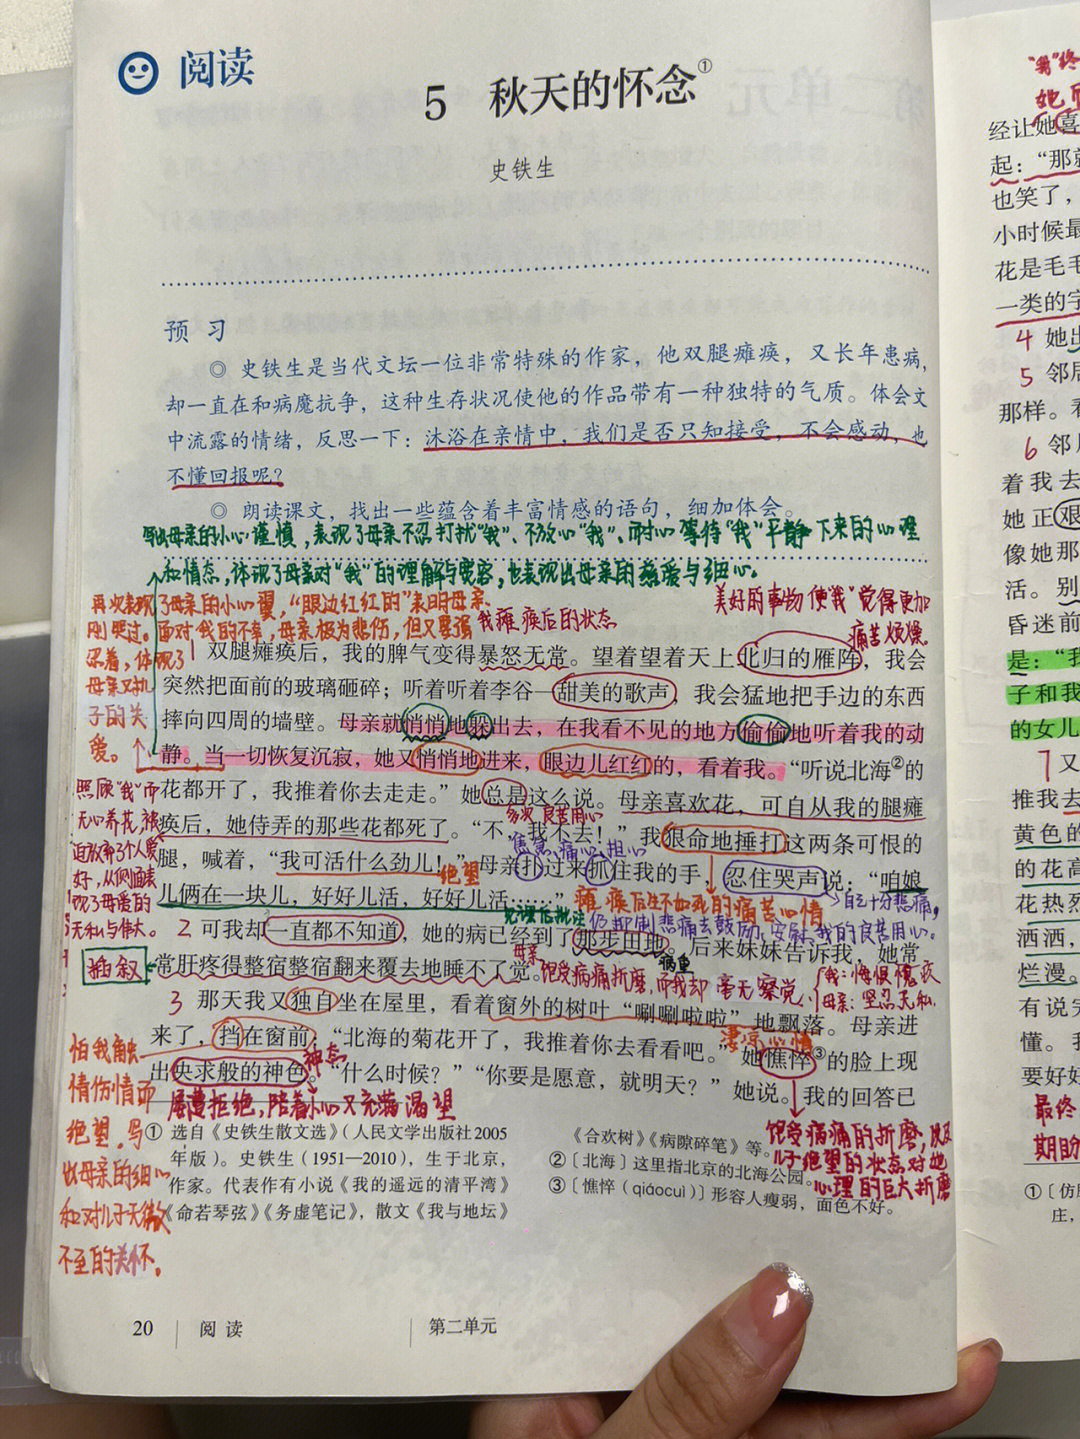 阅读
5 秋天的怀念①
史铁生
预 习
◎ 史铁生是当代文坛一位非常特殊的作家，他双腿瘫痪，又长年患病，
却一直在和病魔抗争，这种生存状况使他的作品带有一种独特的气质。体会文
中流露的情绪，反思一下：沐浴在亲情中，我们是否只知接受，不会感动，也
不懂回报呢？
◎ 朗读课文，找出一些蕴含着丰富情感的语句，细加体会。
写出母亲的小心谨慎，表现了母亲不忍打扰“我”、不放心“我”、耐心等待“我”平静下来的心理
和情态，体现了母亲对“我”的理解与宽容，也表现出母亲的慈爱与细心。
再次表现了母亲的小心翼，“眼边红红的”表明母亲
刚哭过。面对我的不幸，母亲极为悲伤，但又要强
忍着，体现了
母亲又扎
子的关
爱。
我瘫痪后的状态
美好的事物使“我”觉得更加
痛苦烦燥。
1 双腿瘫痪后，我的脾气变得暴怒无常。望着望着天上北归的雁阵，我会
突然把面前的玻璃砸碎；听着听着李谷一甜美的歌声，我会猛地把手边的东西
摔向四周的墙壁。母亲就悄悄地躲出去，在我看不见的地方偷偷地听着我的动
静。当一切恢复沉寂，她又悄悄地进来，眼边儿红红的，看着我。“听说北海②的
花都开了，我推着你去走走。”她总是这么说。母亲喜欢花，可自从我的腿瘫
痪后，她侍弄的那些花都死了。“不，我不去！”我狠命地捶打这两条可恨的
腿，喊着，“我可活什么劲儿！”母亲扑过来抓住我的手，忍住哭声说：“咱娘
儿俩在一块儿，好好儿活，好好儿活……”
照顾“我”而
无心养花，被
迫放弃了个人爱
好，从侧面表
现了母爱的
无私与伟大。
多次 良苦用心
焦急、痛心、担心
绝望
瘫痪后生不如死的痛苦心情
自己十分悲痛，
仍抑制悲痛去鼓励、安慰我的良苦用心。
2 可我却一直都不知道，她的病已经到了那步田地。后来妹妹告诉我，她常
常肝疼得整宿整宿翻来覆去地睡不了觉。
插叙
母亲饱受病痛折磨，而我却毫无察觉
病重
我：悔恨愧疚
母亲：坚忍无私
3 那天我又独自坐在屋里，看着窗外的树叶“唰唰啦啦”地飘落。母亲进
来了，挡在窗前：“北海的菊花开了，我推着你去看看吧。”她憔悴③的脸上现
出央求般的神色。“什么时候？”“你要是愿意，就明天？”她说。我的回答已
凄凉心情
神态
屡遭拒绝，陪着小心又充满渴望
怕我触
情伤情而
绝望。写
出母亲的细心
和对儿子无微
不至的关怀。
饱受病痛的折磨，以及
儿子绝望的状态对她
心理的巨大折磨
① 选自《史铁生散文选》（人民文学出版社2005
年版）。史铁生（1951—2010），生于北京，
作家。代表作有小说《我的遥远的清平湾》
《命若琴弦》《务虚笔记》，散文《我与地坛》
《合欢树》《病隙碎笔》等。
②〔北海〕这里指北京的北海公园。
③〔憔悴（qiáocuì）〕形容人瘦弱，面色不好。
20 阅 读 第二单元
经让她喜
起：“那就
也笑了，
小时候最
花是毛毛
一类的字
4 她出
5 邻居
那样。看
6 邻
着我去
她正艰
像她那
活。别
昏迷前
是：“我
子和我
的女儿
7 又
推我去
黄色的
的花高
花热烈
洒洒，
烂漫。
有说完
懂。我
要好好
最终
期盼
①〔仿膳
庄，